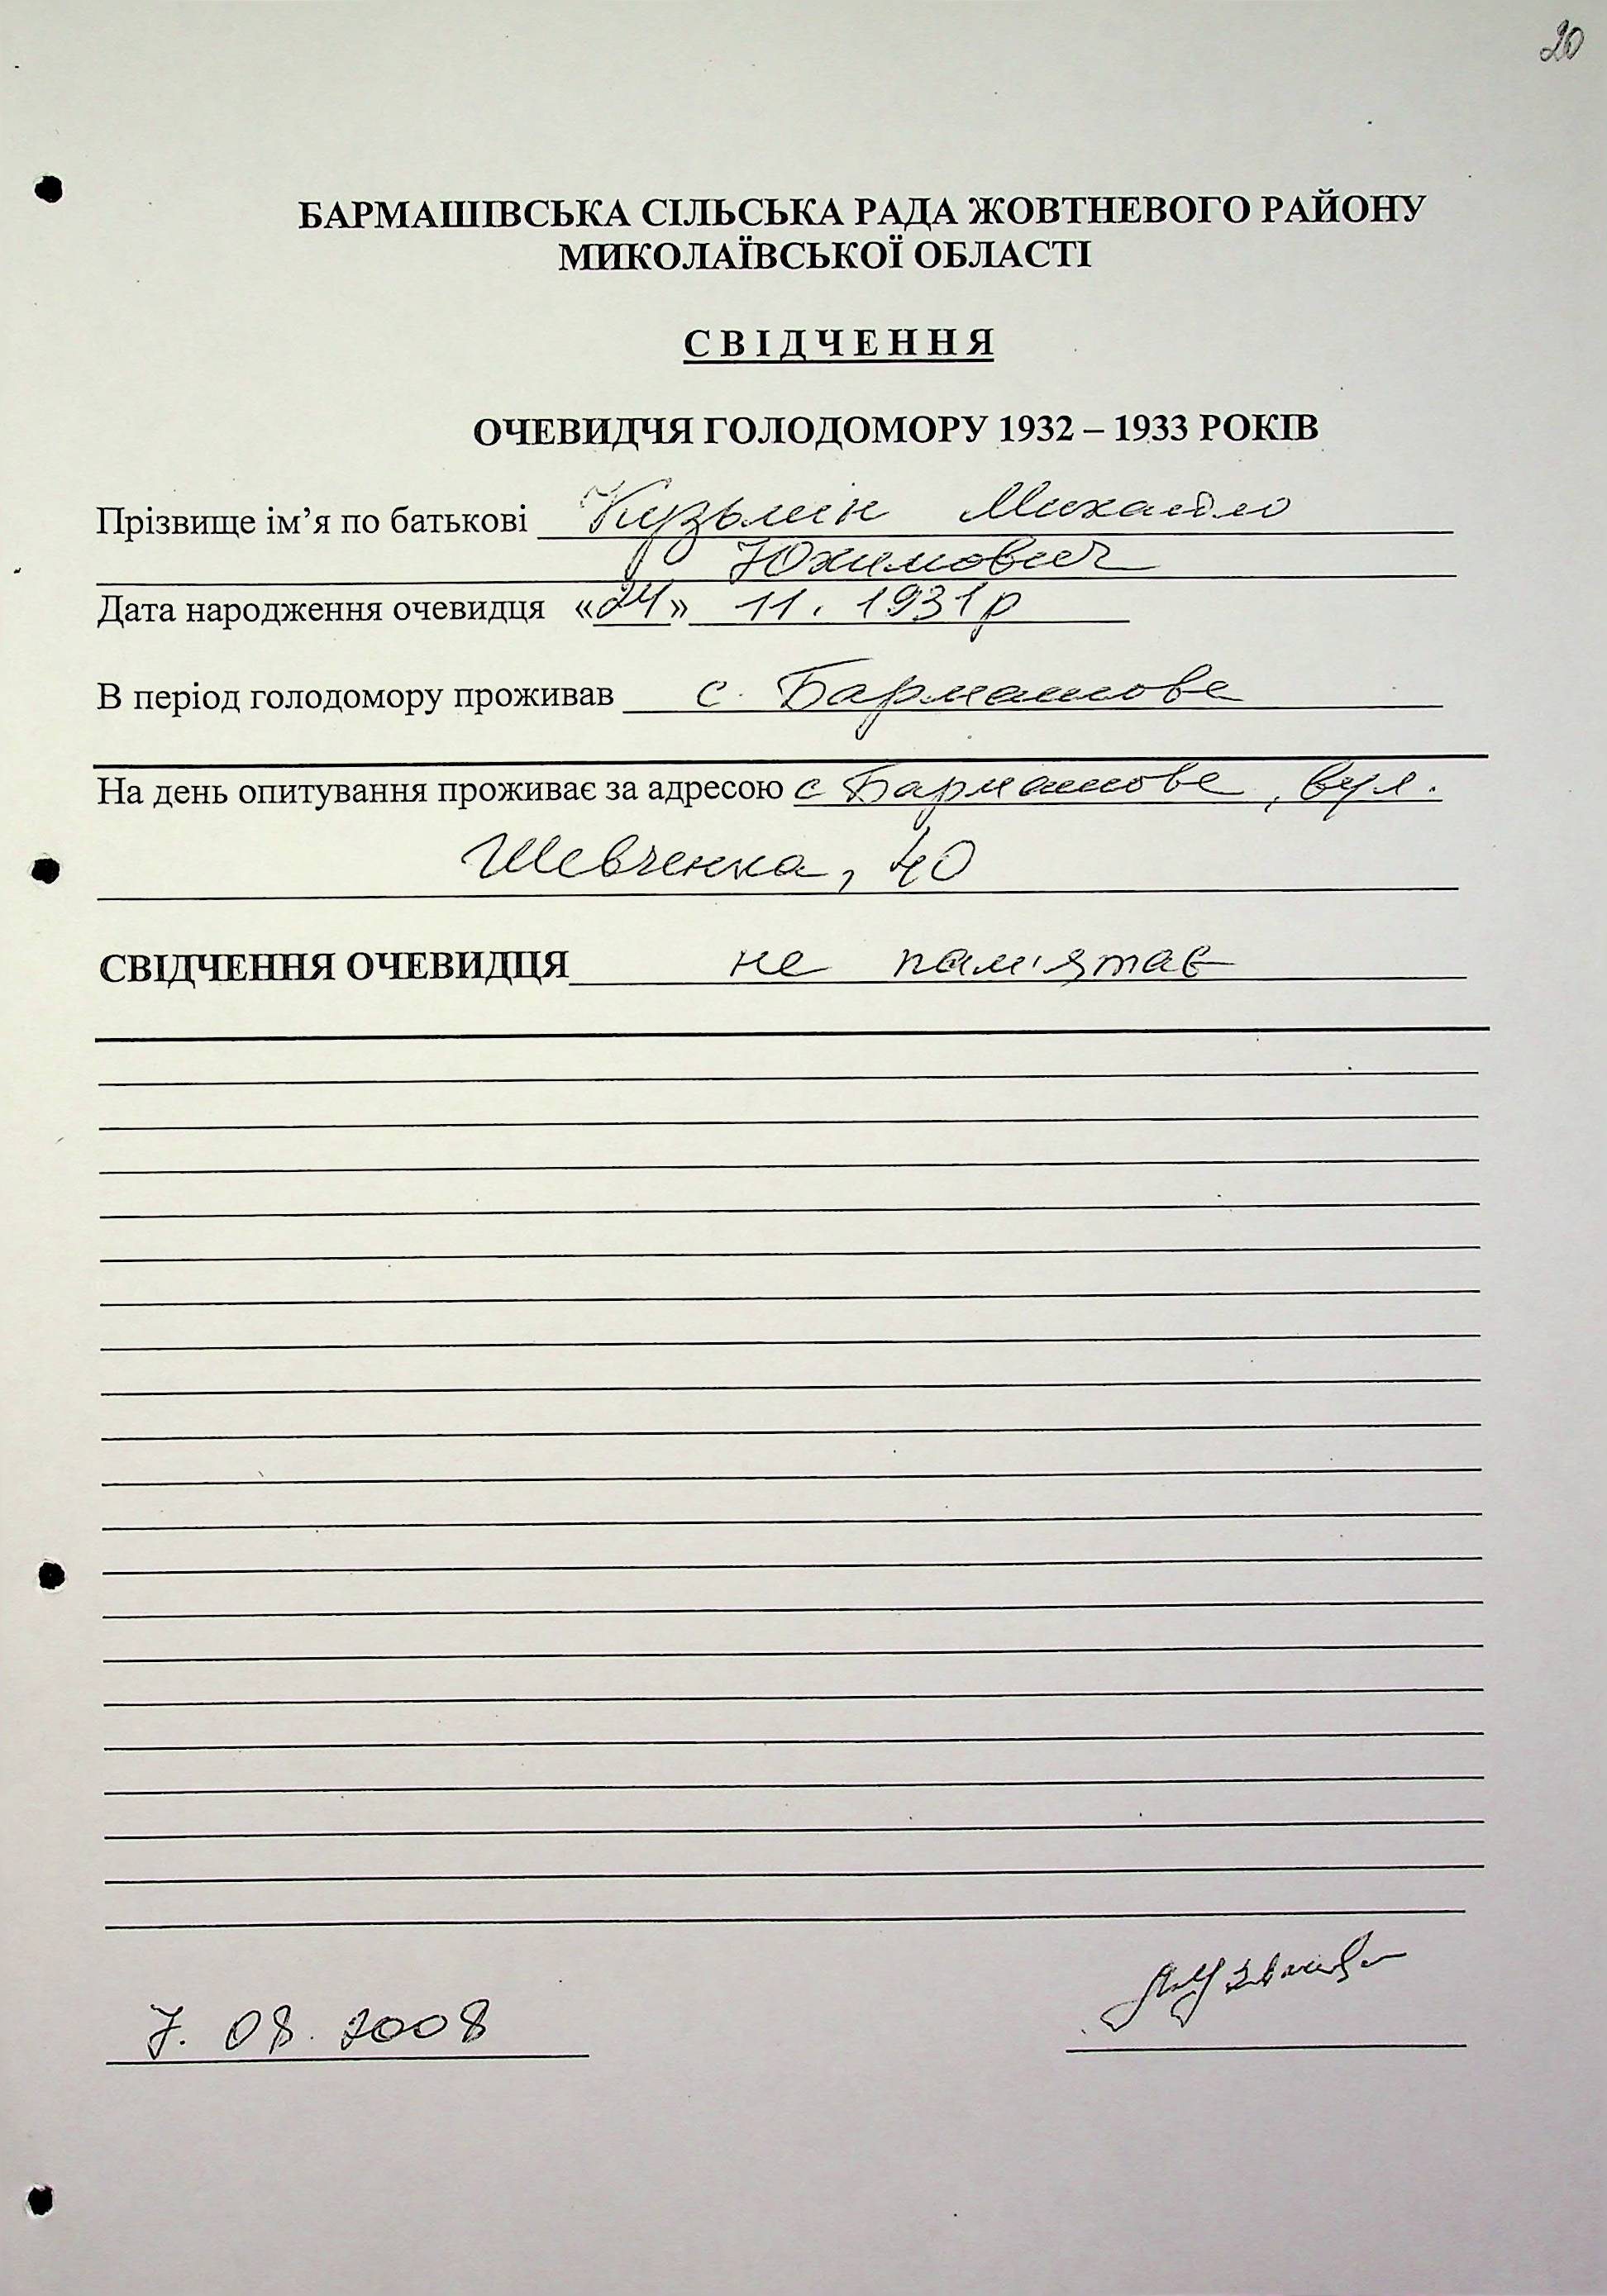 20
БАРМАШІВСЬКА СІЛЬСЬКА РАДА ЖОВТНЕВОГО РАЙОНУ
МИКОЛАЇВСЬКОЇ ОБЛАСТІ
СВІДЧЕННЯ
ОЧЕВИДЧЯ ГОЛОДОМОРУ 1932 – 1933 РОКІВ
Прізвище ім’я по батькові Кузьмін Михайло
Юхимович
Дата народження очевидця «24» 11. 1931р
В період голодомору проживав с. Бармашове
На день опитування проживає за адресою с Бармашове, вул.
Шевченка, 40
СВІДЧЕННЯ ОЧЕВИДЦЯ не пам'ятає
7. 08. 2008